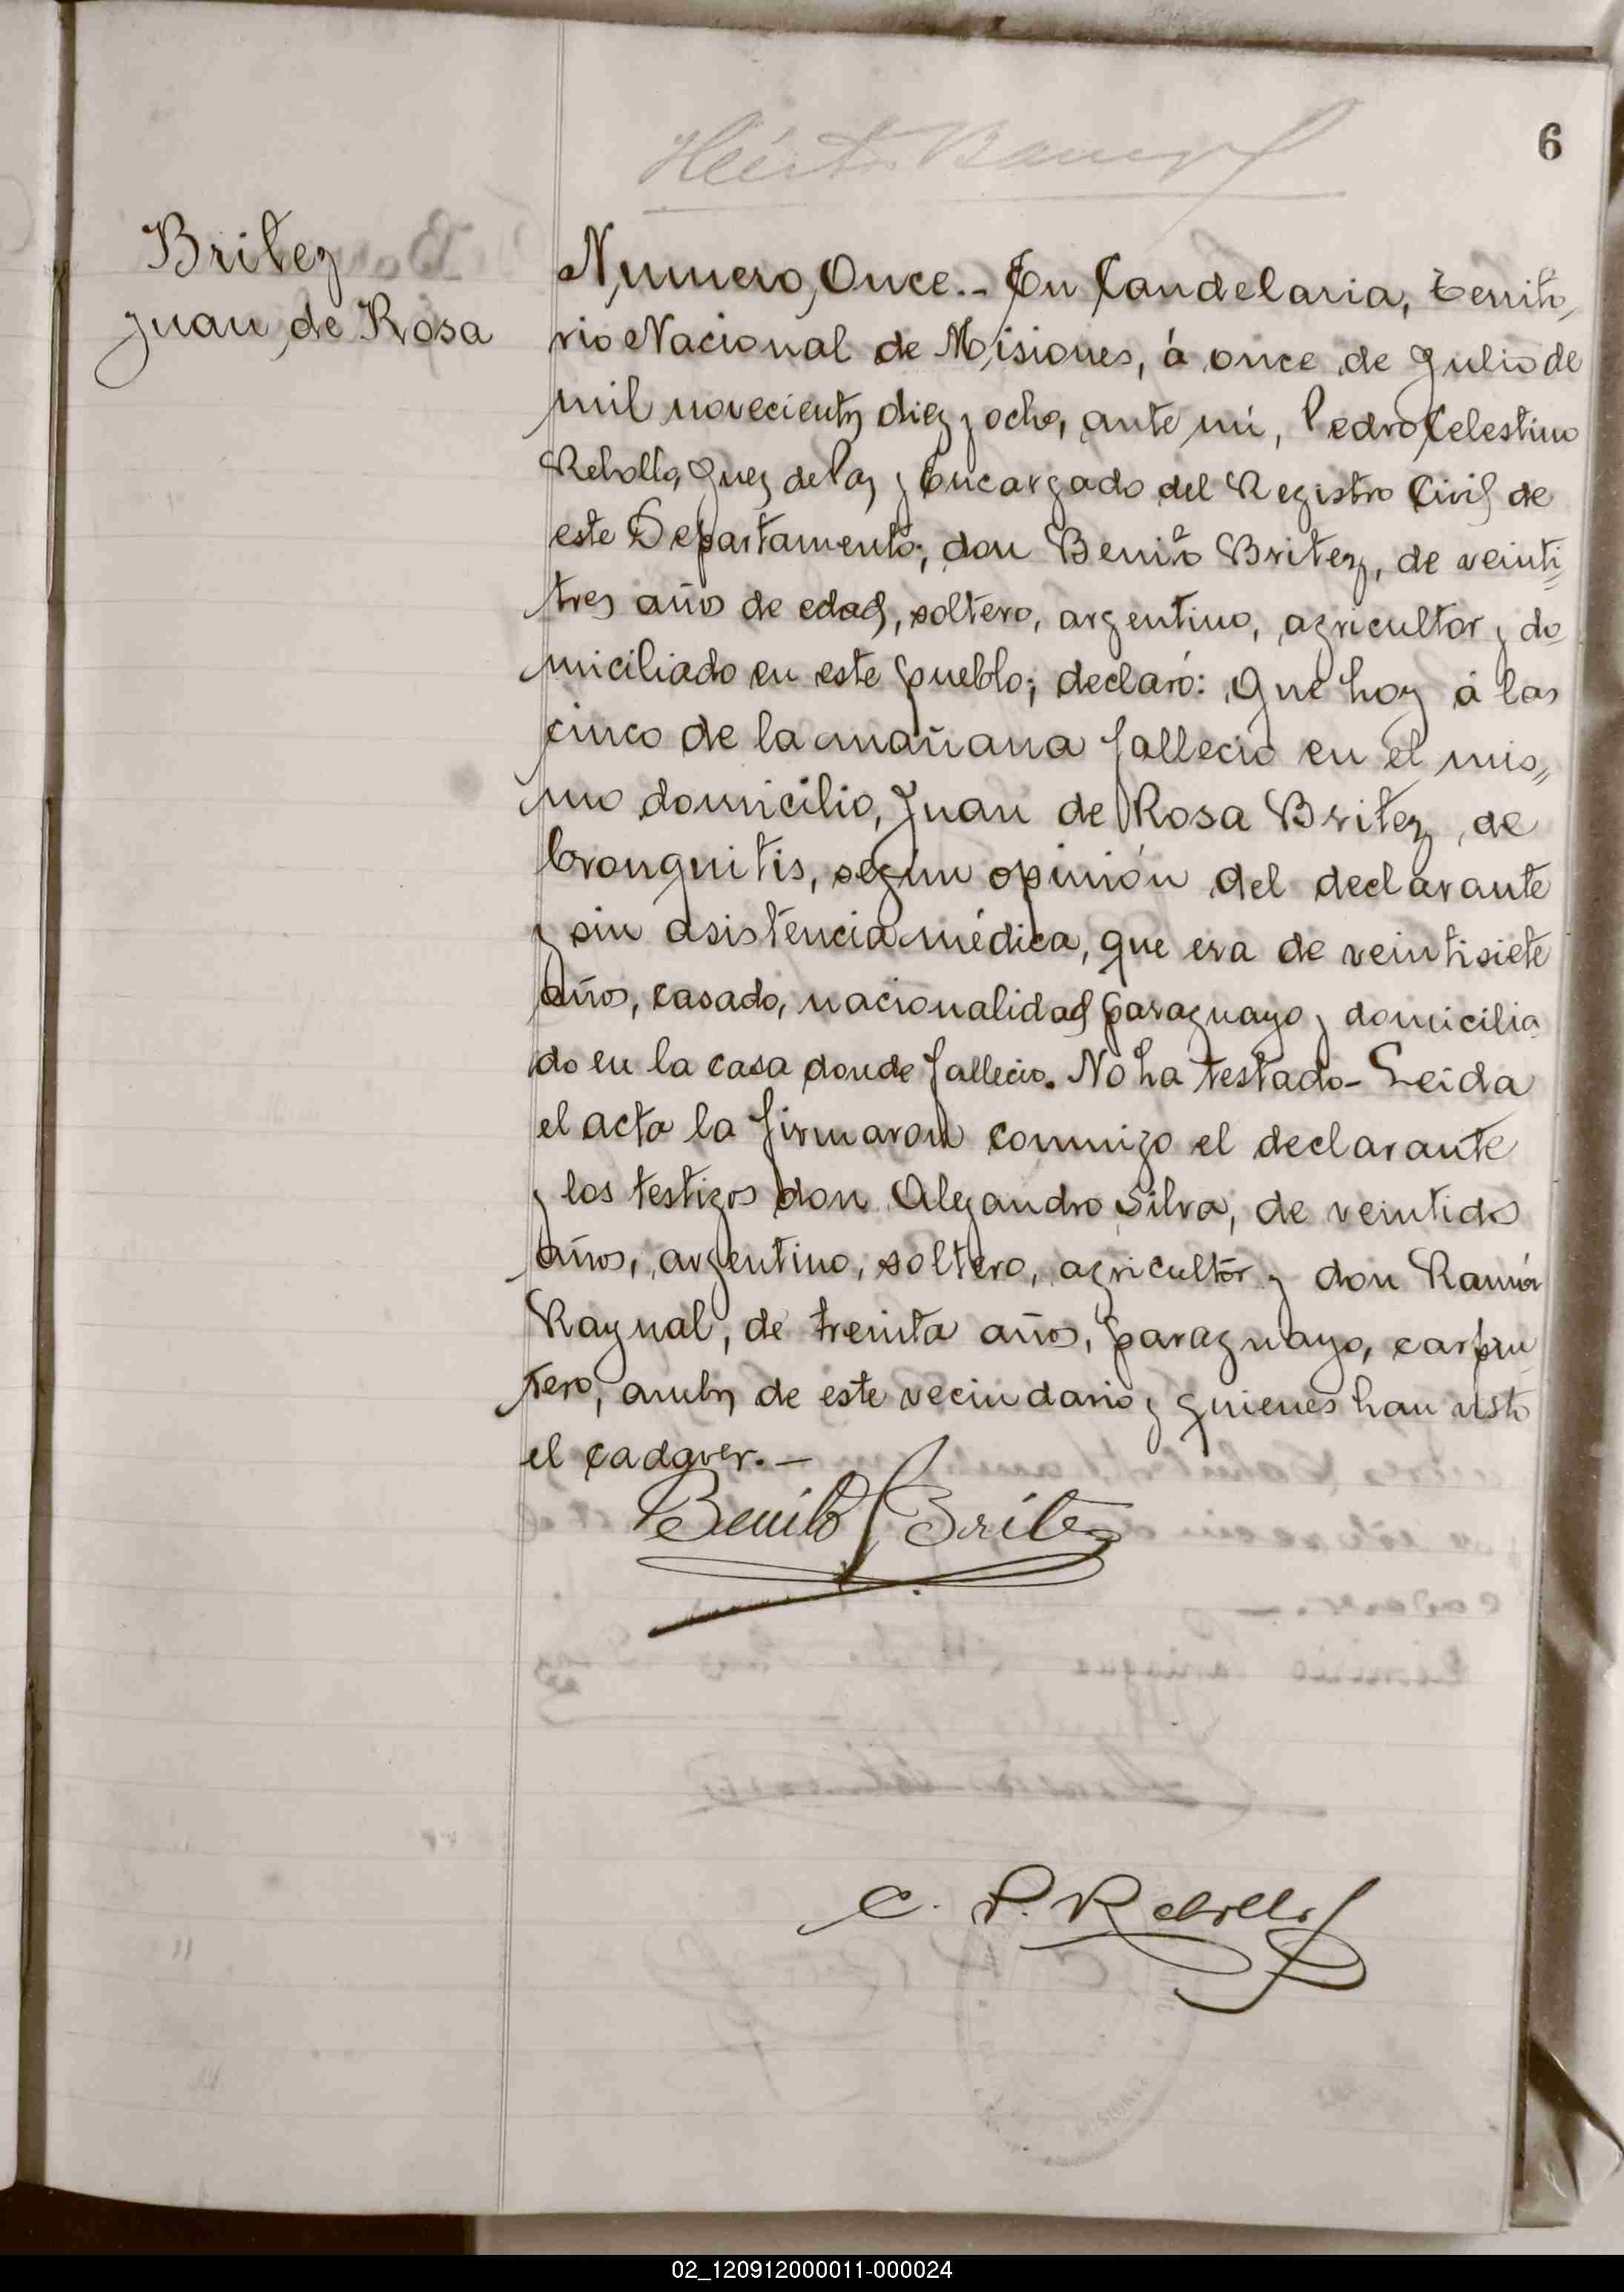 6
Britez
Juan de Rosa
Numero Once.- En Candelaria, Territo-
rio Nacional de Misiones, á once de Julio de
mil novecientos diez y ocho, ante mi, Pedro Celestino
Rebollo, Juez de Paz y Encargado del Registro Civil de
este Departamento; don Benito Britez, de veinti-
tres años de edad, soltero, argentino, agricultor y do
miciliado en este pueblo; declaró: Que hoy á las
cinco de la mañana falleció en el mis=
mo domicilio, Juan de Rosa Britez, de
bronquitis, según opinión del declarante
y sin asistencia médica, que era de veintisiete
años, casado, nacionalidad paraguayo y domicilia
do en la casa donde falleció. No ha testado- Leida
el acta la firmaron conmigo el declarante
y los testigos don Alejandro Silva, de veintidos
años, argentino, soltero, agricultor y don Ramón
Raynal, de treinta años, paraguayo, carpin
tero, ambos de este vecindario y quienes han visto
el cadaver.-
Benito Britez
C. P. Rebollo
02_120912000011-000024